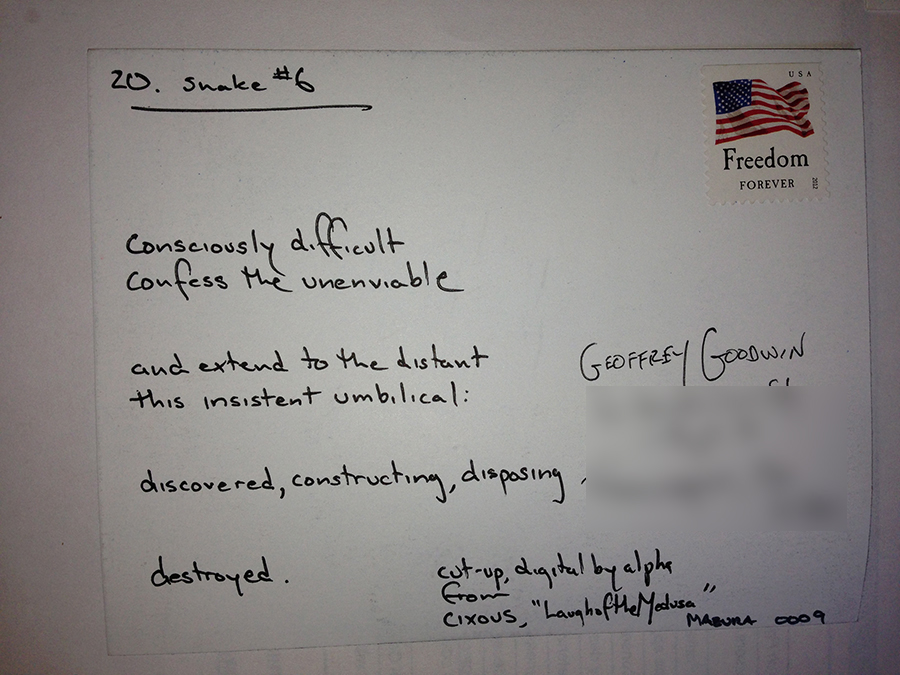 20. snake #6
USA
Freedom
FOREVER
2012
Consciously difficult
Confess the unenviable
and extend to the distant
this insistent umbilical:
GEOFFREY GOODWIN
discovered, constructing, disposing,
destroyed.
cut-up, digital by alpha
from
CIXOUS, "Laugh of the Medusa"
MABURA 0009